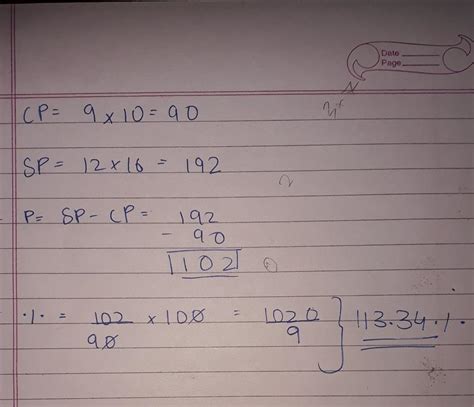 Date
Page
CP = 9 × 10 = 90
SP = 12 × 16 = 192
P = SP - CP = 192
- 90
102
·/· = 102/90 × 100 = 1020/9 } 113.34 ·/·